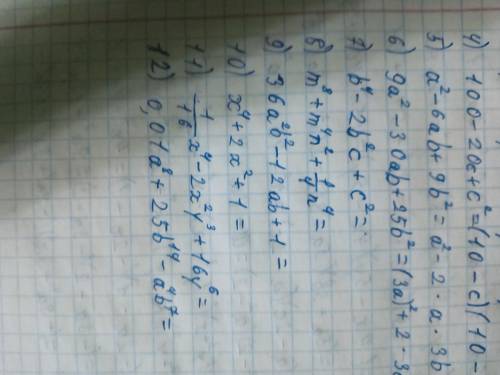 4) 100-20c+c²=(10-c)(10-
5) a²-6ab+9b²=a²-2·a·3b
6) 9a²-30ab+25b²=(3a)²+2·3a
7) b⁴-2b²c+c²=
8) m⁸+m⁴n²+1/4n⁴=
9) 36a²b²-12ab+1=
10) x⁴+2x²+1=
11) 1/16x⁴-2x²y³+16y⁶=
12) 0,01a⁸+25b¹⁴-a⁴b⁷=